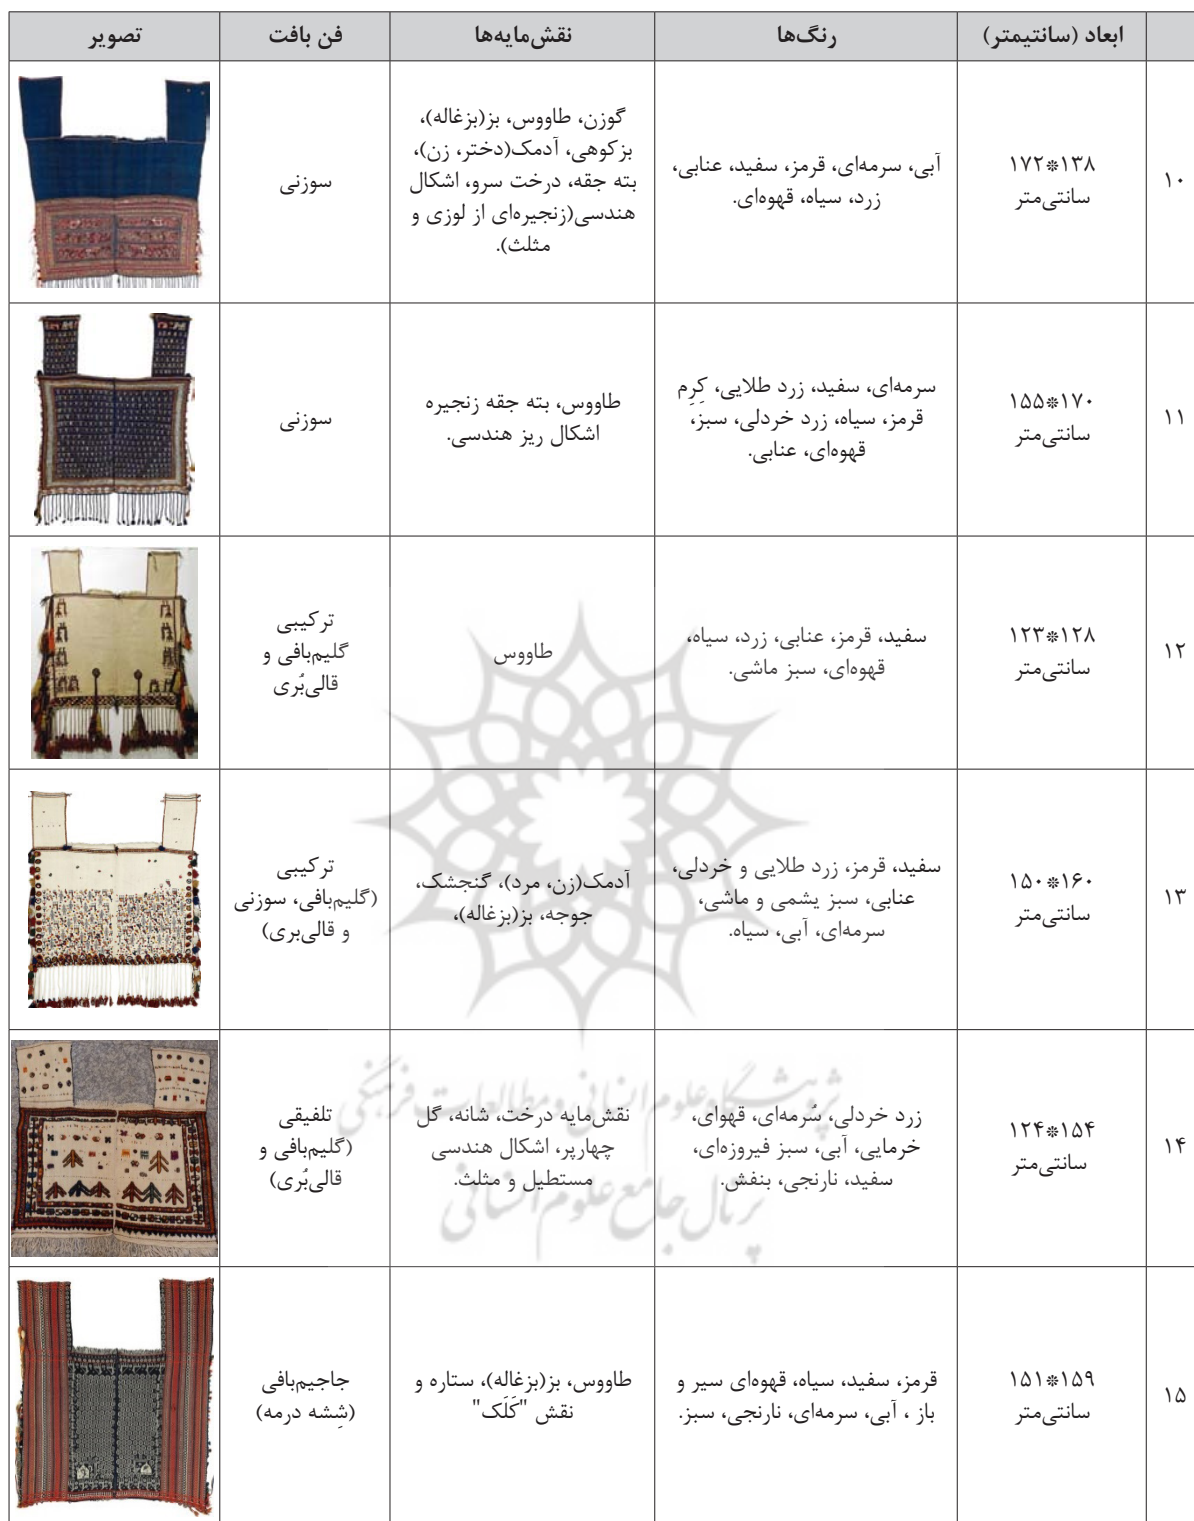 ابعاد (سانتیمتر)
رنگ‌ها
نقش‌مایه‌ها
فن بافت
تصویر
۱۰
۱۷۲*۱۳۸
سانتی‌متر
آبی، سرمه‌ای، قرمز، سفید، عنابی،
زرد، سیاه، قهوه‌ای.
گوزن، طاووس، بز(بزغاله)،
بزکوهی، آدمک(دختر، زن)،
بته جقه، درخت سرو، اشکال
هندسی(زنجیره‌ای از لوزی و
مثلث).
سوزنی
۱۱
۱۵۵*۱۷۰
سانتی‌متر
سرمه‌ای، سفید، زرد طلایی، کِرِم
قرمز، سیاه، زرد خردلی، سبز،
قهوه‌ای، عنابی.
طاووس، بته جقه زنجیره
اشکال ریز هندسی.
سوزنی
۱۲
۱۲۳*۱۲۸
سانتی‌متر
سفید، قرمز، عنابی، زرد، سیاه،
قهوه‌ای، سبز ماشی.
طاووس
ترکیبی
گلیم‌بافی و
قالی‌بُری
۱۳
۱۵۰*۱۶۰
سانتی‌متر
سفید، قرمز، زرد طلایی و خردلی،
عنابی، سبز یشمی و ماشی،
سرمه‌ای، آبی، سیاه.
آدمک(زن، مرد)، گنجشک،
جوجه، بز(بزغاله)،
ترکیبی
(گلیم‌بافی، سوزنی
و قالی‌بری)
۱۴
۱۲۴*۱۵۴
سانتی‌متر
زرد خردلی، سُرمه‌ای، قهوای،
خرمایی، آبی، سبز فیروزه‌ای،
سفید، نارنجی، بنفش.
نقش‌مایه درخت، شانه، گل
چهارپر، اشکال هندسی
مستطیل و مثلث.
تلفیقی
(گلیم‌بافی و
قالی‌بُری)
پژوهشگاه علوم انسانی و مطالعات فرهنگی
پرتال جامع علوم انسانی
۱۵
۱۵۱*۱۵۹
سانتی‌متر
قرمز، سفید، سیاه، قهوه‌ای سیر و
باز ، آبی، سرمه‌ای، نارنجی، سبز.
طاووس، بز(بزغاله)، ستاره و
نقش "کَلَک"
جاجیم‌بافی
(شِشه درمه)